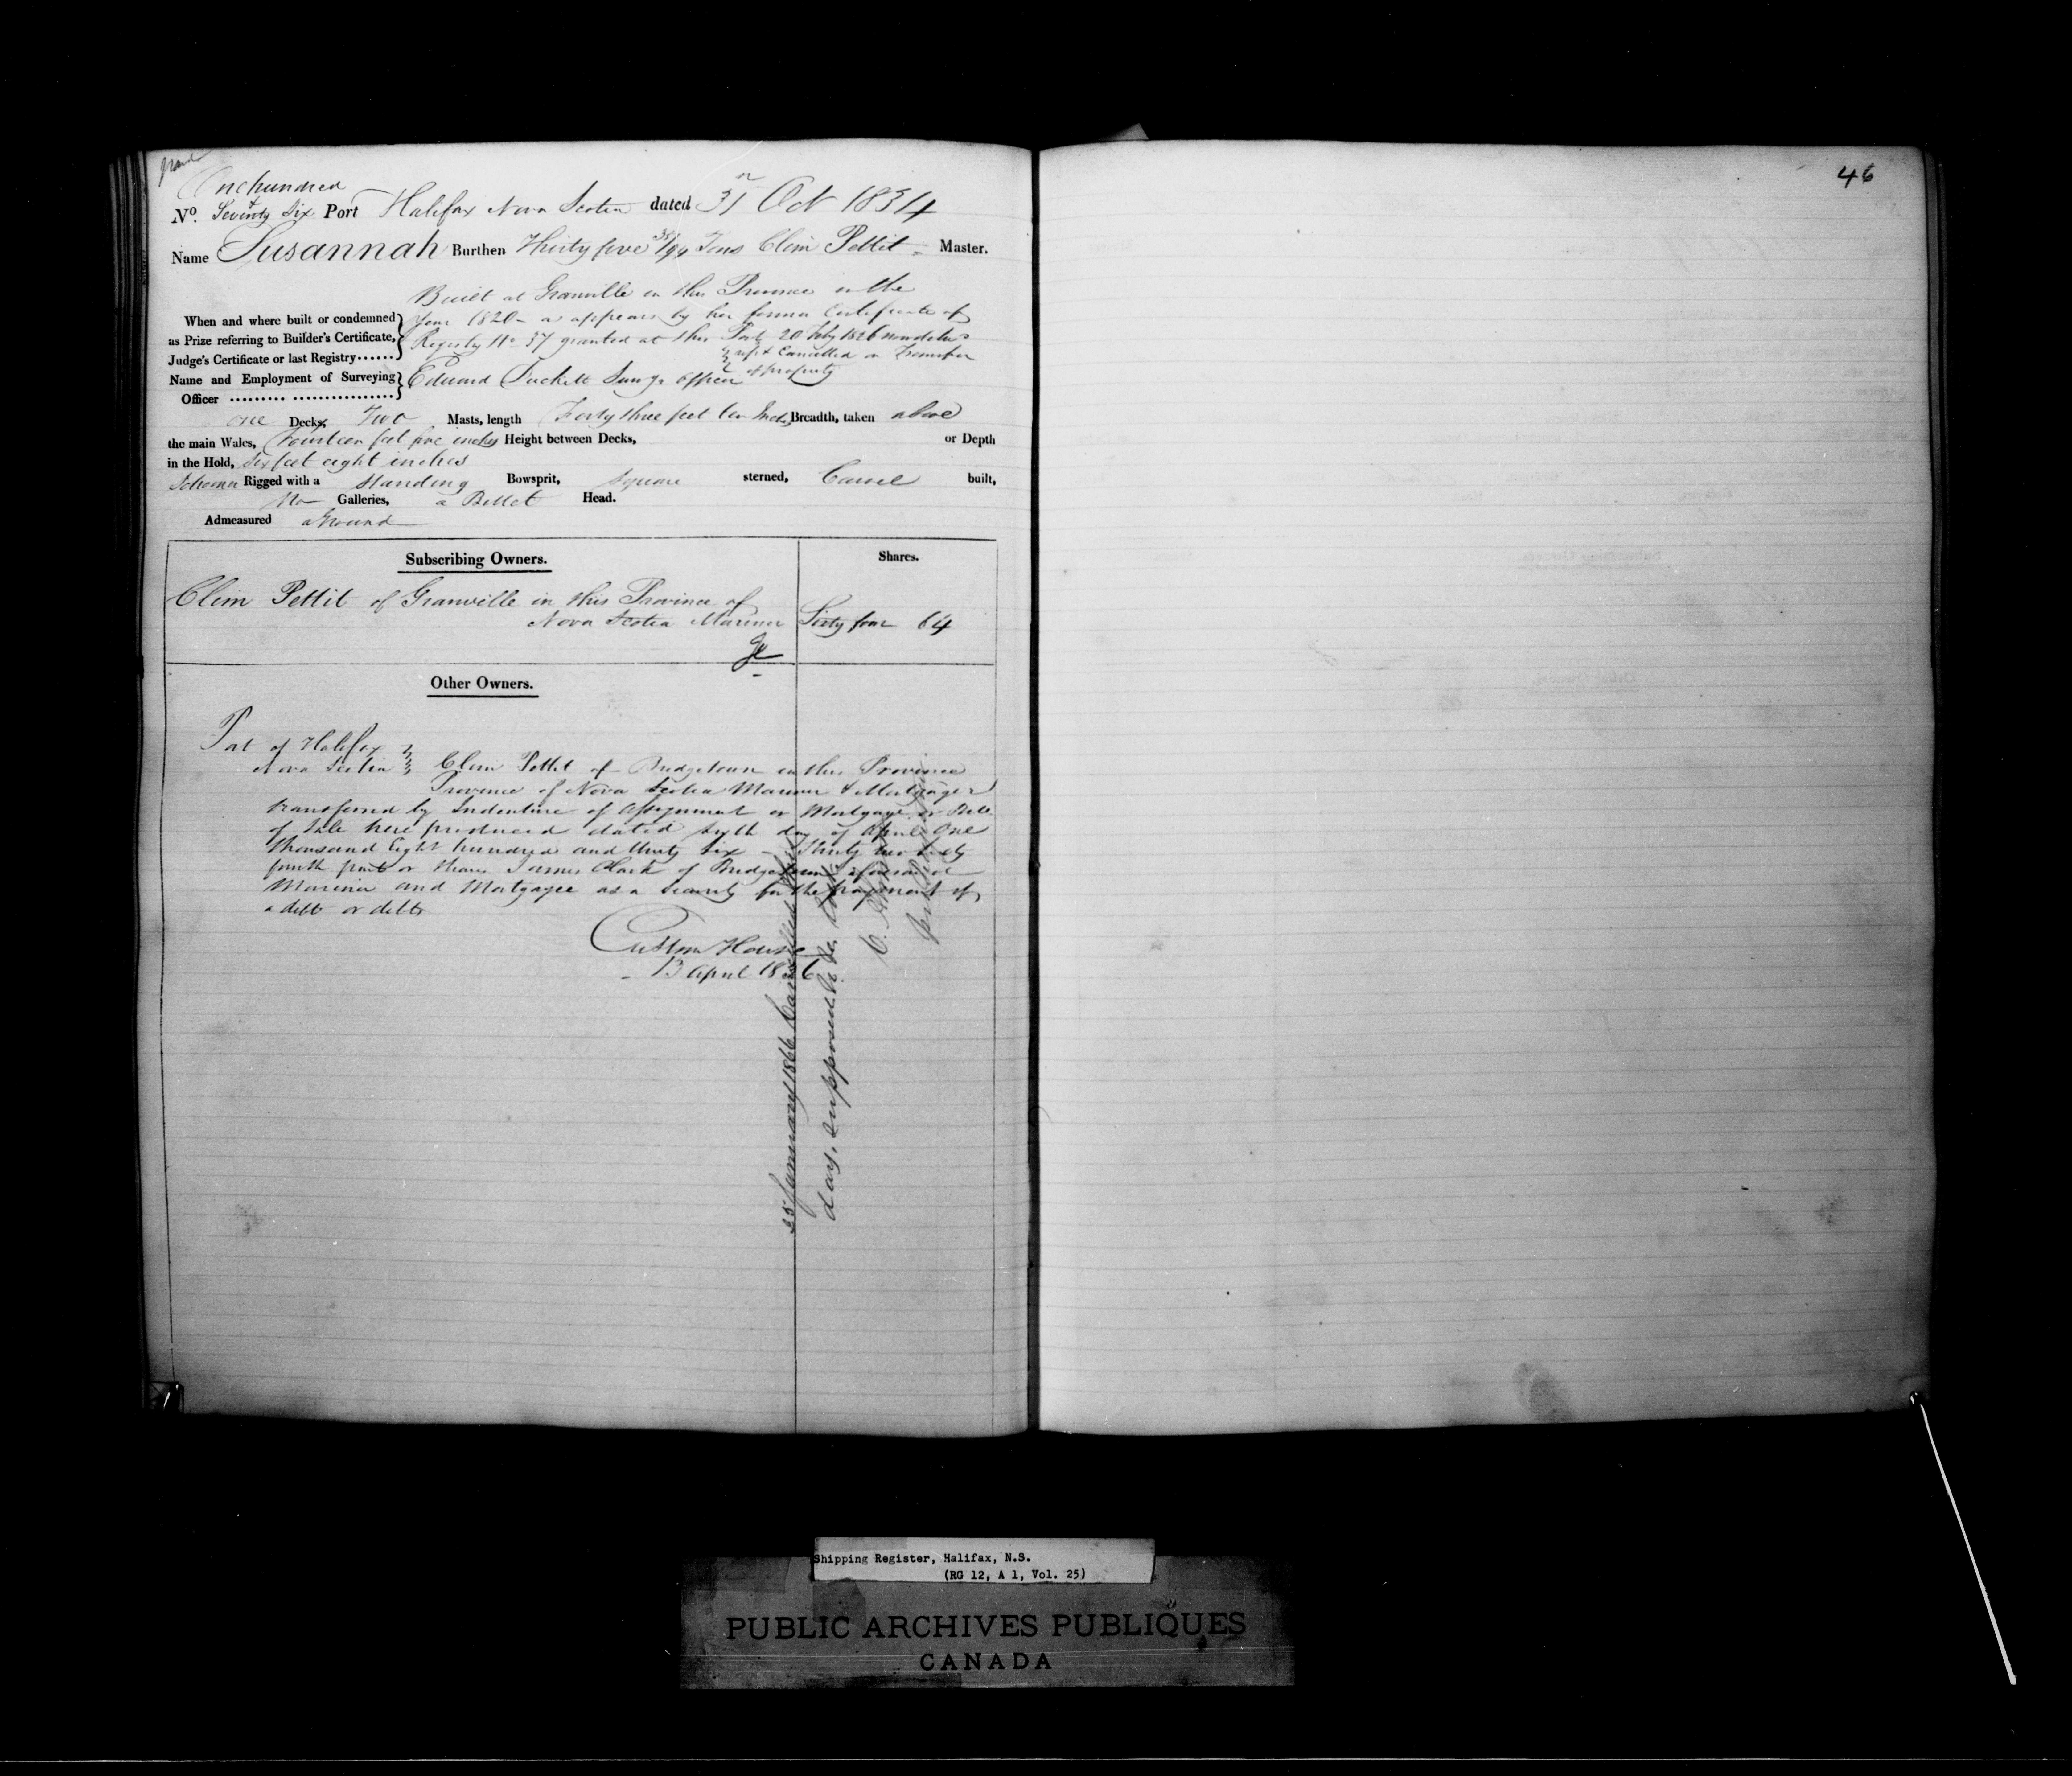 One hundred
No. Seventy Six Port Halifax Nova Scotia dated 31 Oct 1834
Name Susannah Burthen Thirty five 38/94 Tons Clem Pettit Master.
Built at Granville in this Province in the
When and where built or condemned Year 1820 as appears by her former Certificate of
as Prize referring to Builder's Certificate, Registry No 37 granted at this Port 20 Feby 1826 now delivd
Judge's Certificate or last Registry...... up & Cancelled on Transfer
of property
Name and Employment of Surveying Edward Duckett Survg Officer
Officer ......... ................
one Decks, Two Masts, length Forty three feet ten Inches Breadth, taken above
the main Wales, Fourteen feet five inches Height between Decks, or Depth
in the Hold, Six feet eight inches
Schooner Rigged with a Standing Bowsprit, Square sterned, Carvel built,
No Galleries, a Billet Head.
Admeasured aGround
Subscribing Owners. Shares.
Clem Pettit of Granville in this Province of
Nova Scotia Mariner Sixty four 64
Other Owners.
Port of Halifax
Nova Scotia Clem Pettit of Bridgetown in this Province
Province of Nova Scotia Mariner & Mortgager
transferred by Indenture of Assignment or Mortgage or Bill
of Sale here produced dated Sixth day of April One
thousand Eight hundred and thirty Six Thirty two sixty
fourth parts or Shares James Clark of Bridgetown aforesaid
Mariner and Mortgagee as a Security for the payment of
a debt or debts
Custom House
13 April 1836
25 January 1866 Cancelled this
day, supposed to be lost
46
Shipping Register, Halifax, N.S.
(RG 12, A 1, Vol. 25)
PUBLIC ARCHIVES PUBLIQUES
CANADA